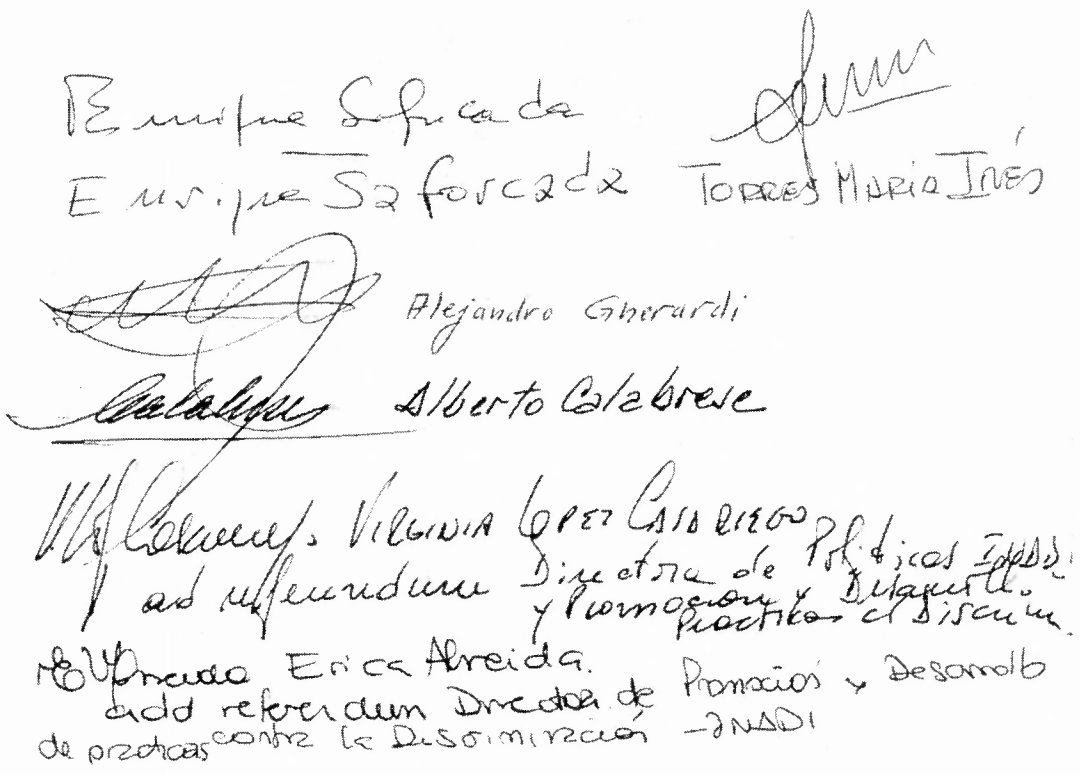 Enrique Saforcada
Enrique Saforcada
TORRES MARÍA INÉS
Alejandro Gherardi
Alberto Calabrese
VIRGINIA LOPEZ CASARIEGO
ad referendum Directora de Políticas INADI
y Promoción y Desarrollo
Prácticas c/ Discrim.
Erica Almeida.
add referendum Directora de Promoción y Desarrollo
de practicas contra la Discriminación - INADI